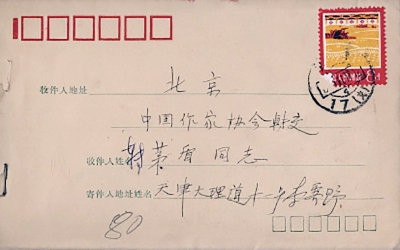 收件人地址 北京
中国作家协会转交
收件人姓名 转茅盾同志
寄件人地址姓名 天津大理道十一号李霁野
80
17